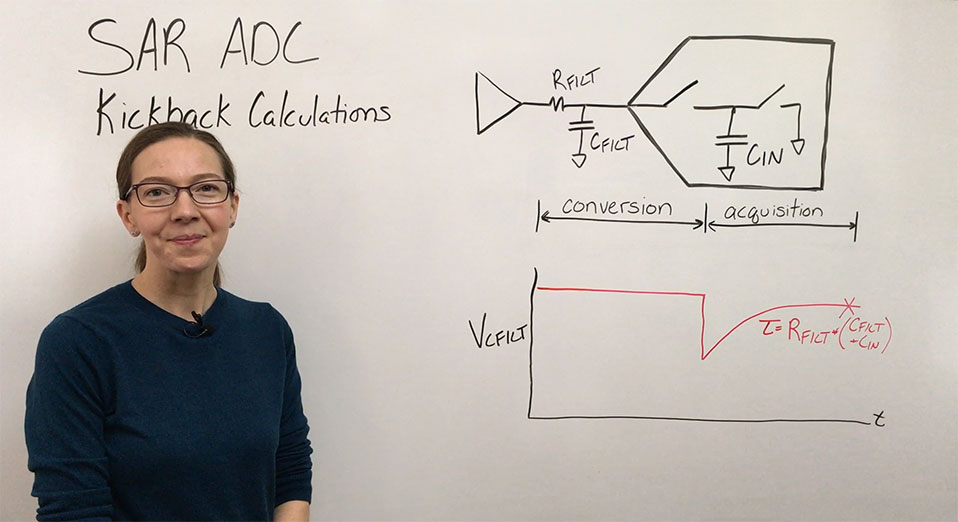 SAR ADC
Kickback Calculations
RFILT
CFILT
CIN
conversion
acquisition
VCFILT
τ = RFILT * (CFILT
+ CIN)
t